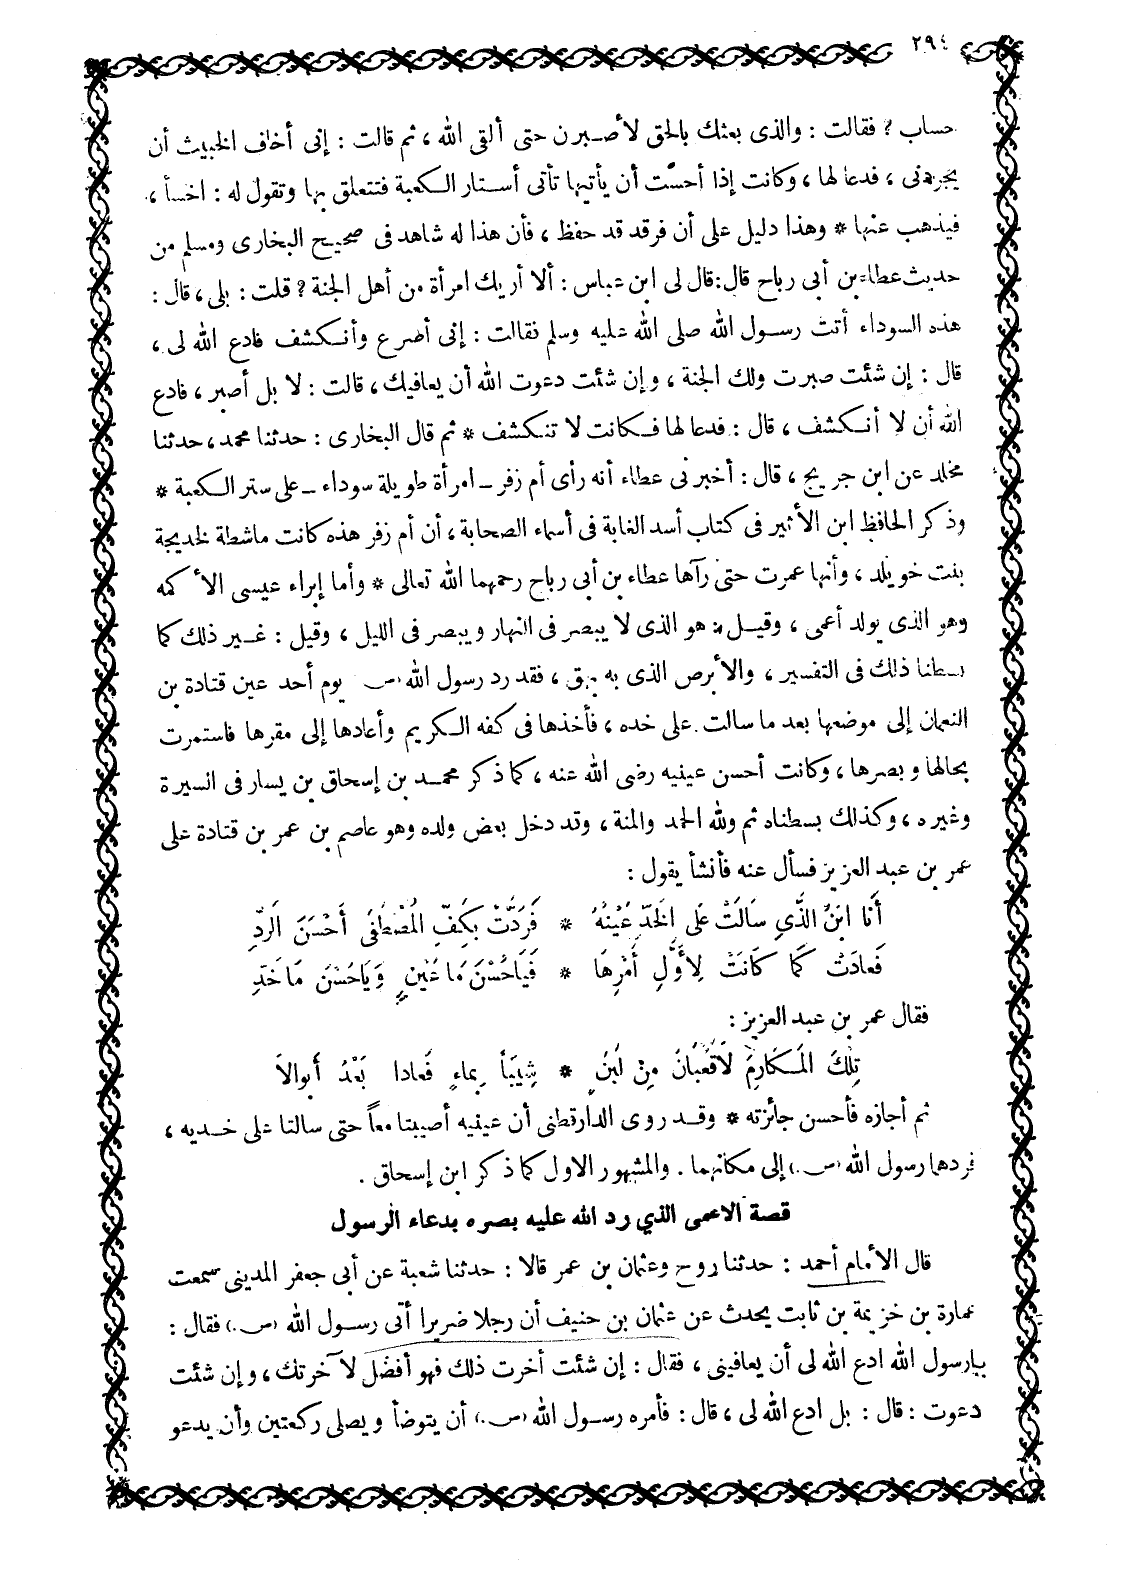 ٢٩٤
حساب ? فقالت : والذى بعثك بالحق لأصبرن حتى ألقى الله ، ثم قالت : إنى أخاف الخبيث أن
يجردنى ، فدعا لها ، وكانت إذا أحست أن يأتيها تأتى أستار الكعبة فتتعلق بها وتقول له : اخسأ ،
فيذهب عنها * وهذا دليل على أن فرقد قد حفظ ، فأن هذا له شاهد فى صحيح البخارى ومسلم من
حديث عطاء بن أبى رباح قال : قال لى ابن عباس : ألا أريك امرأة من أهل الجنة ? قلت : بلى ، قال :
هذه السوداء أتت رسول الله صلى الله عليه وسلم فقالت : إنى أصرع وأنكشف فادع الله لى ،
قال : إن شئت صبرت ولك الجنة ، وإن شئت دعوت الله أن يعافيك ، قالت : لا بل أصبر ، فادع
الله أن لا أنكشف ، قال : فدعا لها فكانت لا تنكشف * ثم قال البخارى : حدثنا محمد ، حدثنا
مخلد عن ابن جريج ، قال : أخبرنى عطاء أنه رأى أم زفر - امرأة طويلة سوداء - على ستر الكعبة *
وذكر الحافظ ابن الأثير فى كتاب أسد الغابة فى أسماء الصحابة ، أن أم زفر هذه كانت ماشطة لخديجة
بنت خويلد ، وأنها عمرت حتى رآها عطاء بن أبى رباح رحمهما الله تعالى * وأما إبراء عيسى الأكمه
وهو الذى يولد أعمى ، وقيل : هو الذى لا يبصر فى النهار ويبصر فى الليل ، وقيل : غير ذلك كما
بسطنا ذلك فى التفسير ، والأبرص الذى به بهق ، فقد رد رسول الله (ص) يوم أحد عين قتادة بن
النعمان إلى موضعها بعد ما سالت على خده ، فأخذها فى كفه الكريم وأعادها إلى مقرها فاستمرت
بحالها وبصرها ، وكانت أحسن عينيه رضى الله عنه ، كما ذكر محمد بن إسحاق بن يسار فى السيرة
وغيره ، وكذلك بسطناه ثم ولله الحمد والمنة ، وقد دخل بعض ولده وهو عاصم بن عمر بن قتادة على
عمر بن عبد العزيز فسأل عنه فأنشأ يقول :
أَنَا ابْنُ الَّذِي سَالَتْ عَلَى الخَدِّ عَيْنُهُ * فَرَدَّتْ بِكَفِّ المُصْطَفَى أَحْسَنَ الرَدِّ
فَعادَتْ كَمَا كَانَتْ لِأَوَّلِ أَمْرِهَا * فَيَاحُسْنَ مَا عَيْنٍ وَيَاحُسْنَ مَا خَدِّ
فقال عمر بن عبد العزيز :
تِلْكَ المَكَارِمُ لَاقَعْبَانَ مِنْ لَبَنٍ * شِيبَاً بِمَاءٍ فَعادا بَعْدُ أَبوالاَ
ثم أجازه فأحسن جائزته * وقد روى الدارقطنى أن عينيه أصيبتا معاً حتى سالتا على خديه ،
فردهما رسول الله (ص) إلى مكانهما . والمشهور الاول كما ذكر ابن إسحاق .
قصة الاعمى الذي رد الله عليه بصره بدعاء الرسول
قال الأمام أحمد : حدثنا روح وعثمان بن عمر قالا : حدثنا شعبة عن أبى جعفر المدينى سمعت
عمارة بن خزيمة بن ثابت يحدث عن عثمان بن حنيف أن رجلا ضريرا أتى رسول الله (ص) فقال :
يارسول الله ادع الله لى أن يعافينى ، فقال : إن شئت أخرت ذلك فهو أفضل لآخرتك ، وإن شئت
دعوت : قال : بل ادع الله لى ، قال : فأمره رسول الله (ص) أن يتوضأ ويصلى ركعتين وأن يدعو